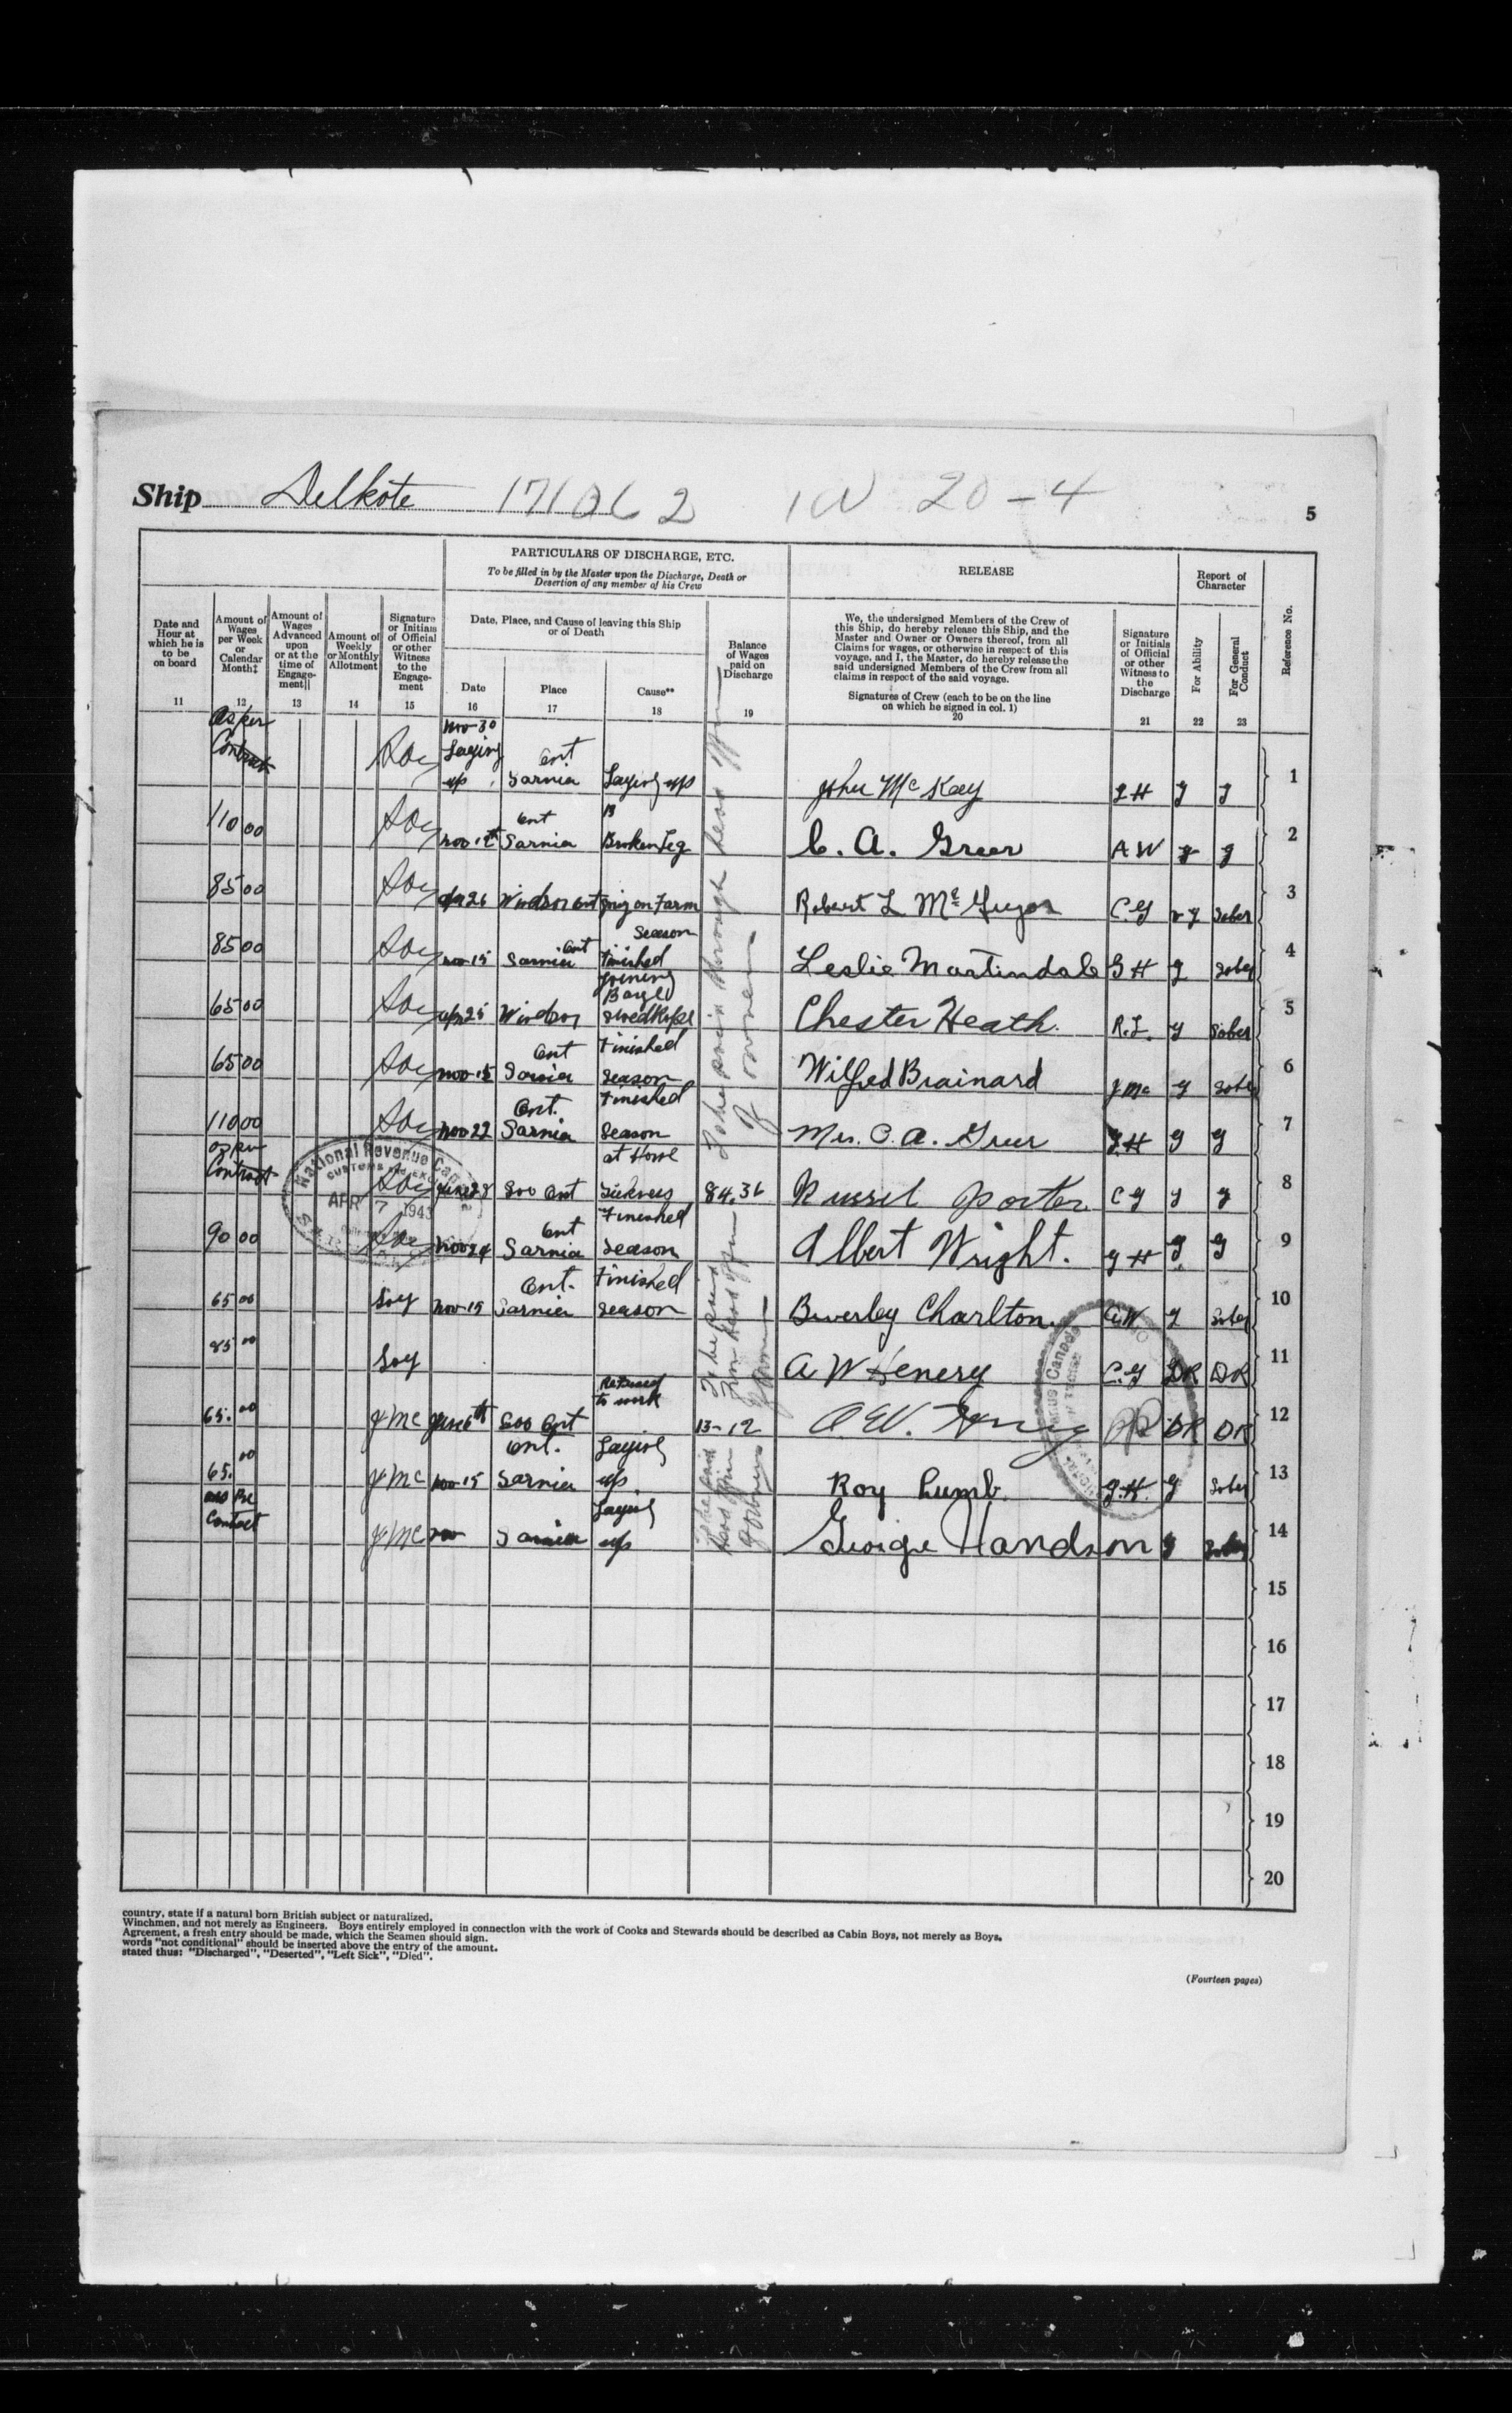 Ship Delkote 171062 1W 20-4
5
PARTICULARS OF DISCHARGE, ETC.
To be filled in by the Master upon the Discharge, Death or
Desertion of any member of his Crew
RELEASE
Report of
Character
Reference No.
Date and
Hour at
which he is
to be
on board
Amount of
Wages
per Week
or
Calendar
Month‡
Amount of
Wages
Advanced
upon
or at the
time of
Engage-
ment||
Amount of
Weekly
or Monthly
Allotment
Signature
or Initials
of Official
or other
Witness
to the
Engage-
ment
Date, Place, and Cause of leaving this Ship
or of Death
Date
Place
Cause**
Balance
of Wages
paid on
Discharge
We, the undersigned Members of the Crew of
this Ship, do hereby release this Ship, and the
Master and Owner or Owners thereof, from all
Claims for wages, or otherwise in respect of this
voyage, and I, the Master, do hereby release the
said undersigned Members of the Crew from all
claims in respect of the said voyage.
Signatures of Crew (each to be on the line
on which he signed in col. 1)
Signature
or Initials
of Official
or other
Witness to
the
Discharge
For Ability
For General
Conduct
11 12 13 14 15 16 17 18 19 20 21 22 23
As per
Contract
Nov 30
Laying
up
Ont
Sarnia Laying up John McKay G H g g 1
110 00 Nov 12th Ont
Sarnia Broken Leg C. A. Greer A W g g 2
85 00 Apr 26 Windsor Ont going on Farm Robert L C.G v g Sober 3
85 00 Nov 15 Sarnia Ont Finished
Season Leslie Martindale G H g Sober 4
65 00 Apr 25 Windsor Joining
Barge Chester Heath. R.L. g Sober 5
65 00 Nov 15 Ont
Sarnia Finished
Season Wilfred Brainard J Mc g Sober 6
110 00 Nov 22 Ont.
Sarnia Finished
Season Mrs. C. A. Greer G H g g 7
To be paid through head office
of owners
as per
Contract
June 28 Soo Ont Sickness
at Home 84.36 Russel Porter C G g g 8
90 00 Nov 24 Ont
Sarnia Finished
Season Albert Wright. G H g g 9
65 00 Nov 15 Ont.
Sarnia Finished
Season Beverley Charlton A.W. g Sober 10
85 00 A W Henery C.G DR DR 11
To be paid
from head office
of owners
65.00 J Mc June 6th Soo Ont Refused
to work 13-12 DR DR 12
65.00 J Mc Nov 15 Ont.
Sarnia Laying
up Roy Lumb G.H. g Sober 13
as Per
Contract J Mc Nov Sarnia Laying
up George g Sober 14
To be paid
head office
of owners
15
16
17
18
19
20
National Revenue Canada
CUSTOMS
APR 7 1943
country, state if a natural born British subject or naturalized.
Winchmen, and not merely as Engineers. Boys entirely employed in connection with the work of Cooks and Stewards should be described as Cabin Boys, not merely as Boys.
Agreement, a fresh entry should be made, which the Seamen should sign.
words "not conditional" should be inserted above the entry of the amount.
stated thus: "Discharged", "Deserted", "Left Sick", "Died".
(Fourteen pages)